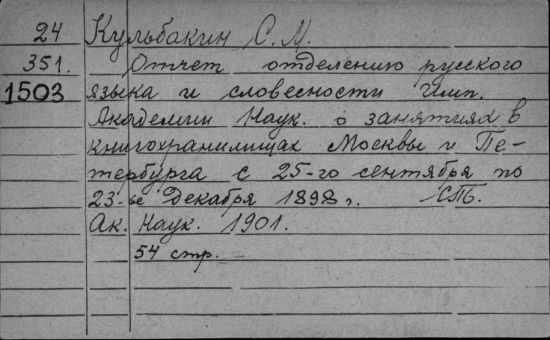 24 Кульбакин С. М.
351. Отчет отделению русского
1503 языка и словесности Имп.
Академии Наук. о занятиях в
книгохранилищах Москвы и Пе-
тербурга с 25-го сентября по
23-ье декабря 1898 г. СПБ.
Ак. Наук. 1901.
54 стр.